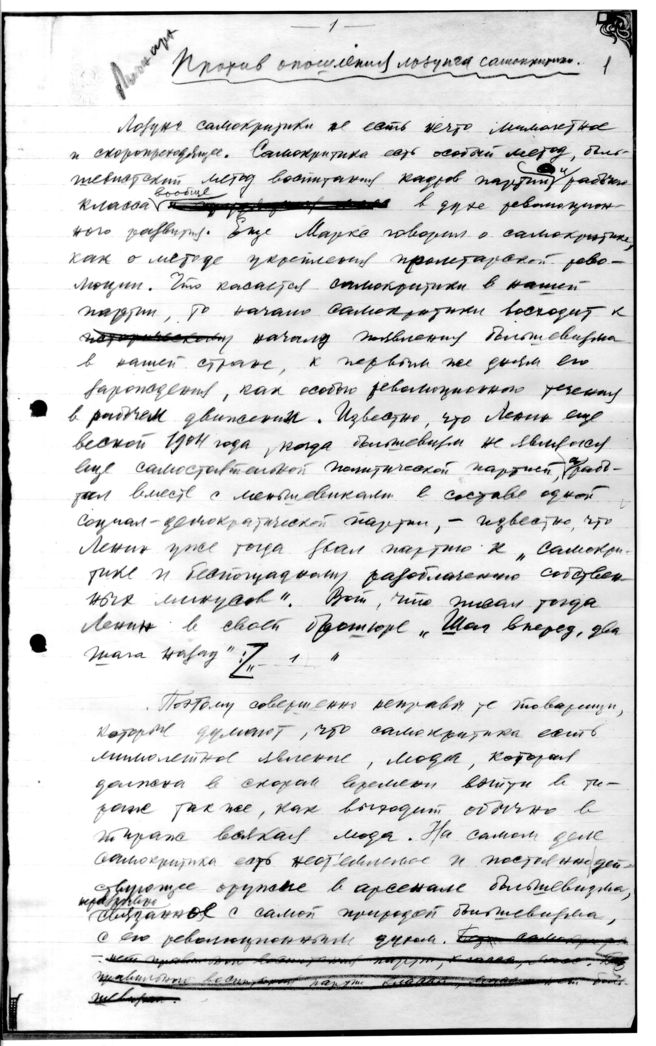 — 1 —
1
Против опошления лозунга самокритики.
Лозунг самокритики не есть нечто мимолетное
и скоропреходящее. Самокритика есть особый метод, боль-
шевистский метод воспитания кадров партии и рабочего
класса вообще в духе революцион-
ного развития. Еще Маркс говорил о самокритике,
как о методе укрепления пролетарской рево-
люции. Что касается самокритики в нашей
партии, то начало самокритики восходит к
началу появления большевизма
в нашей стране, к первым же дням его
зарождения, как особого революционного течения
в рабочем движении. Известно, что Ленин еще
весной 1904 года, когда большевизм не являлся
еще самостоятельной политической партией, а рабо-
тал вместе с меньшевиками в составе одной
социал-демократической партии, – известно, что
Ленин уже тогда звал партию к „самокри-
тике и беспощадному разоблачению собствен-
ных минусов“. Вот, что писал тогда
Ленин в своей брошюре „Шаг вперед, два
шага назад“: „ 1 “
Поэтому совершенно неправы те товарищи,
которые думают, что самокритика есть
мимолетное явление, мода, которая
должна в скором времени выйти в ти-
раж так же, как выходит обычно в
тираж всякая мода. На самом деле
самокритика есть неотъемлемое и постоянно дей-
ствующее оружие в арсенале большевизма,
неразрывно
связанное с самой природой большевизма,
с его революционным духом.